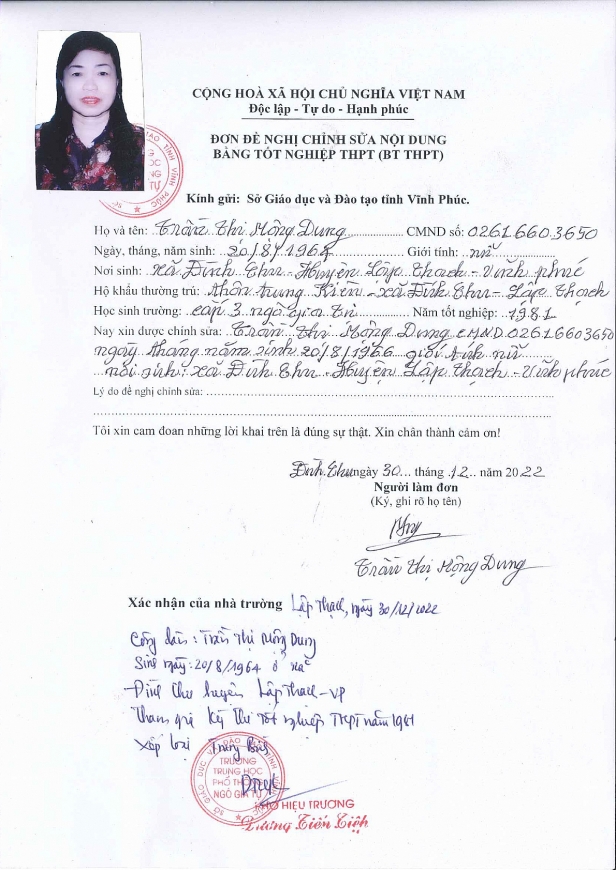 CỘNG HOÀ XÃ HỘI CHỦ NGHĨA VIỆT NAM
Độc lập - Tự do - Hạnh phúc
ĐƠN ĐỀ NGHỊ CHỈNH SỬA NỘI DUNG
BẰNG TỐT NGHIỆP THPT (BT THPT)
Kính gửi: Sở Giáo dục và Đào tạo tỉnh Vĩnh Phúc.
Họ và tên: Trần Thị Mộng Dung CMND số: 026166003650
Ngày, tháng, năm sinh: 20/8/1964 Giới tính: nữ
Nơi sinh: xã Đình Chu - Huyện Lập Thạch - Vĩnh phúc
Hộ khẩu thường trú: thôn trung Kiên - xã Đình Chu - Lập Thạch
Học sinh trường: cấp 3 ngô gia Tự Năm tốt nghiệp: 1981
Nay xin được chỉnh sửa: Trần Thị Mộng Dung CMND 026166003650
ngày tháng năm sinh 20/8/1966 giới tính nữ
nơi sinh: xã Đình Chu - Huyện Lập Thạch - Vĩnh phúc
Lý do đề nghị chỉnh sửa:
Tôi xin cam đoan những lời khai trên là đúng sự thật. Xin chân thành cám ơn!
Đình Chu ngày 30 tháng 12 năm 2022
Người làm đơn
(Ký, ghi rõ họ tên)
Trần Thị Mộng Dung
Xác nhận của nhà trường Lập Thạch, ngày 30/12/2022
Công dân: Trần Thị Mộng Dung
Sinh ngày: 20/8/1964 ở xã
Đình Chu huyện Lập Thạch - VP
Tham gia Kỳ thi tốt nghiệp THPT năm 1981
Xếp loại Trung Bình
TRƯỜNG
TRUNG HỌC
PHỔ THÔNG
NGÔ GIA TỰ
PHÓ HIỆU TRƯỞNG
Dương Tiến Diện